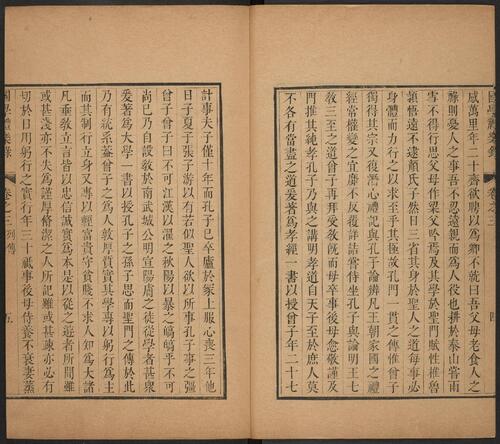 咸萬里年二十齊欲聘以爲卿不就曰吾父母老食人之
祿則憂人之事吾不忍遠親而爲人役也耕於泰山嘗雨
雪不得行思父母作梁父吟焉及其學於聖門賦性推魯
穎悟遠不逮顏氏子然日三省其身於聖人之道每事必
身體而力行之以求至乎其極故孔門一貫之傳惟曾子
獨得其宗又復潛心禮記與孔子論辨凡王朝家國之禮
經常權變之宜靡不反復詳詰嘗侍坐孔子與論明王七
教三至之道曾子再拜受敬旣而母卒事後母愈敬謹及
門推其純孝孔子乃與之講明孝道自天子至於庶人莫
不各有當盡之道爰者爲孝經一書以授曾子年二十七
計事夫子僅十年而孔子已卒廬於冢上服心喪三年他
日子夏子張子游以有若似聖人欲以所事孔子事之彊
曾子曾子曰不可江漢以濯之秋陽以暴之皜皜乎不可
尚已乃自設敎於南武城公明宣陽膚之徒從學者甚衆
爰著爲大學一書以授孔子之孫子思而聖門之傳於此
乃有統系蓋曾子之爲人敦厚質實其學專以躬行爲主
而其制行立身又專以輕富貴守貧賤不求人知爲大諸
凡垂敎立言皆以忠信誠實爲本是以從之遊者所聞雖
或甚淺亦不失爲謹厚脩潔之人所記雖或甚疎亦必有
切於日用躬行之實行年三十祇事後母侍養不衰妻蒸
卷之三 列傳
五